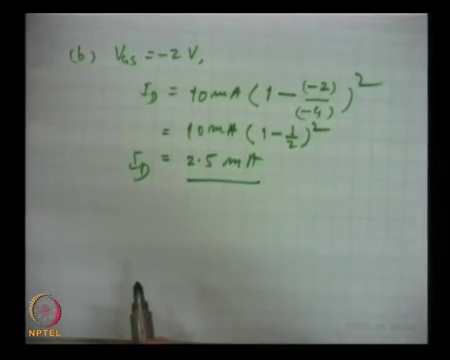 (b) VGS = -2 V,
ID = 10 mA (1 - (-2)/(-4))²
= 10 mA (1 - 1/2)²
ID = 2.5 mA
NPTEL